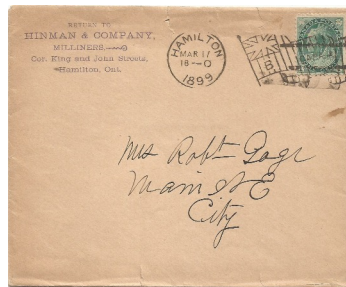 RETURN TO
HINMAN & COMPANY,
MILLINERS,
Cor. King and John Streets,
Hamilton, Ont.
HAMILTON
MAR 17
18—0
1899
Mrs Robt Page
Main St E
City